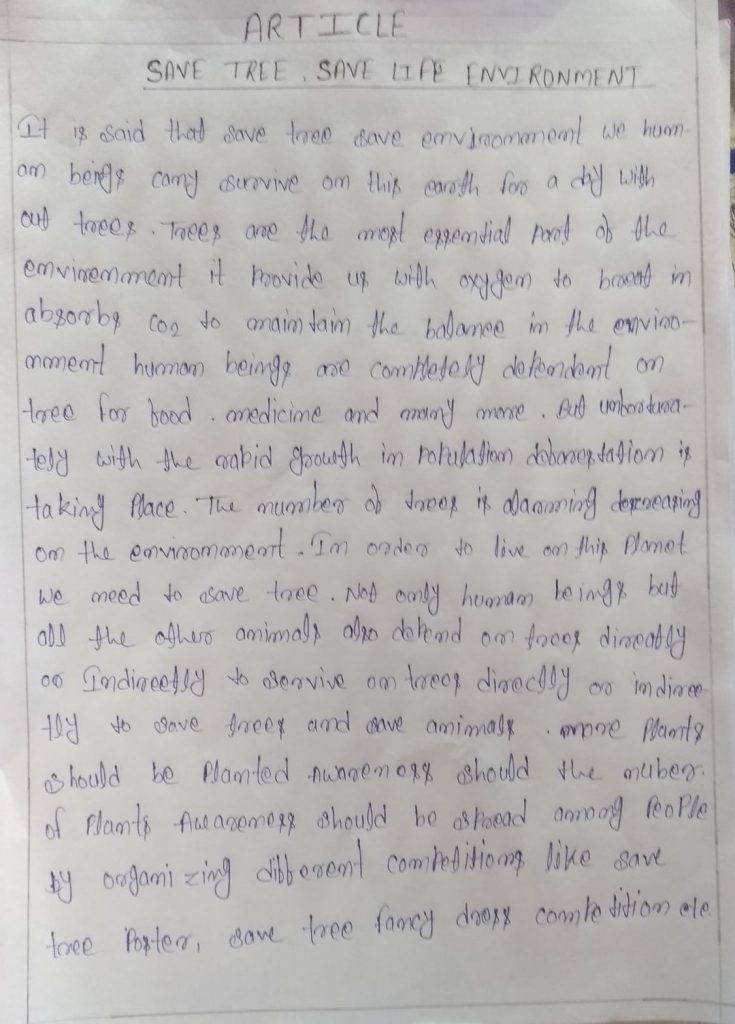 ARTICLE
SAVE TREE, SAVE LIFE ENVIRONMENT
It is said that save tree save environmment we hum-
an beings cany survive on this earth for a day with
out trees. Trees are the most essential part of the
environmment it Provide us with oxygen to breat in
absorbs CO2 to maintain the balance in the enviro-
nmment human beings are completely dependent on
tree for food. medicine and many more. But unfortuna-
tely with the rapid growth in Population deforestation is
taking Place. The number of trees is alarming decreasing
on the environmment. In order to live on this Planet
we need to save tree. Not only human beings but
all the others animals also depend on trees directly
or Indirectly to servive on trees directly or indirec
tly to save trees and save animals. more Plants
should be Planted Awareness should the nuber.
of Plants Awareness should be spread among PeoPle
by organizing different competitions like save
tree Poster, save tree fancy dress competition ete.